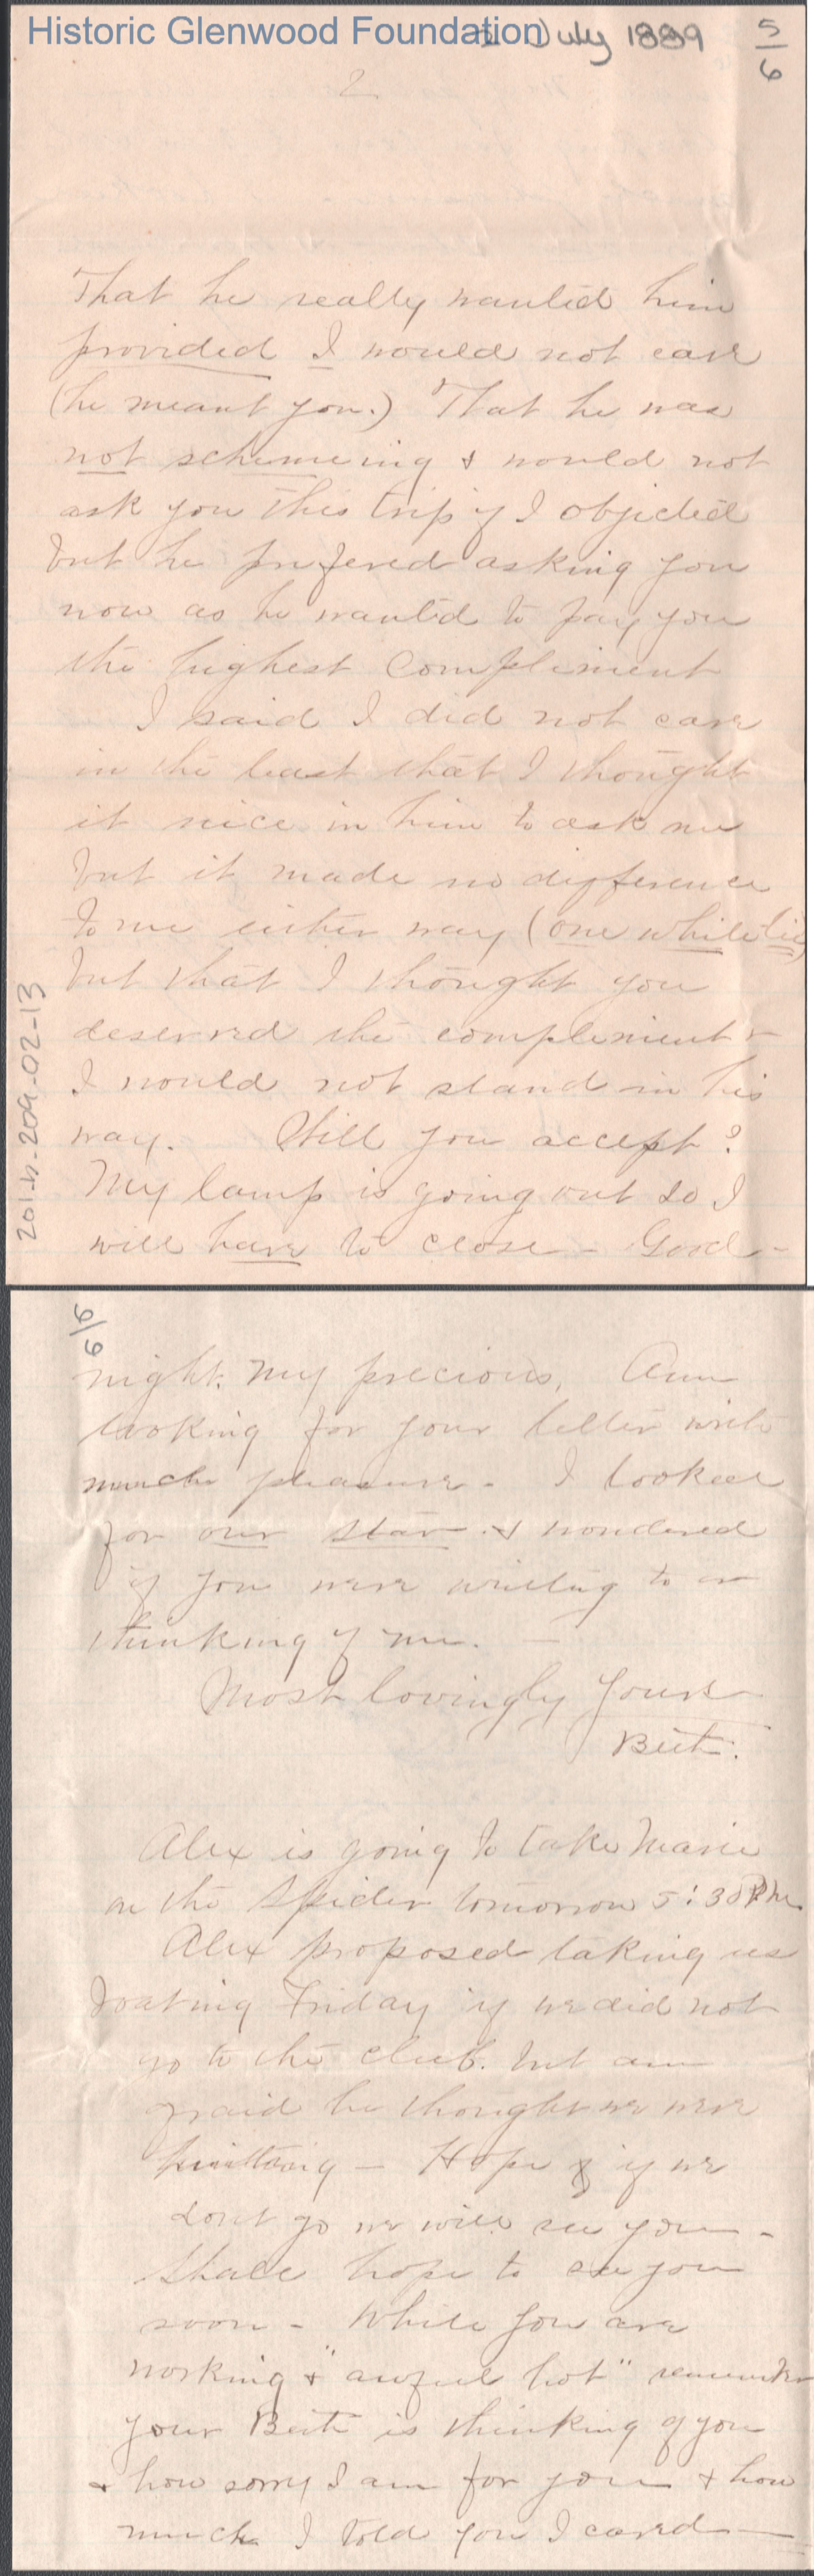 Historic Glenwood Foundation
July 1889
5/6
2
That he really wanted him
provided I would not care
(he meant you.) That he was
not schemeing & would not
ask you this trip if I objected
but he prefered asking you
now as he wanted to pay you
the highest compliment
I said I did not care
in the least that I thought
it nice in him to ask me
but it made no difference
to me either way (one white lie)
but that I thought you
deserved the compliment &
I would not stand in his
way. Will you accept?
My lamp is going out so I
will have to close - Good-
201.h.209-02-13
6/6
night. My precious, Am
looking for your letter with
much pleasure - I looked
for our star & wondered
if you were writing to or
thinking of me.
Most lovingly yours
Beit.
Alex is going to take Marie
on the Spider tomorrow 5:30 P.M.
Alex proposed taking us
boating Friday if we did not
go to the club. but am
afraid he thought we were
- Hope if we
dont go we will see you -
Shall hope to see you
soon - While you are
working & "awful hot" remember
your Beit is thinking of you
& how sorry I am for you & how
much I told you I cared